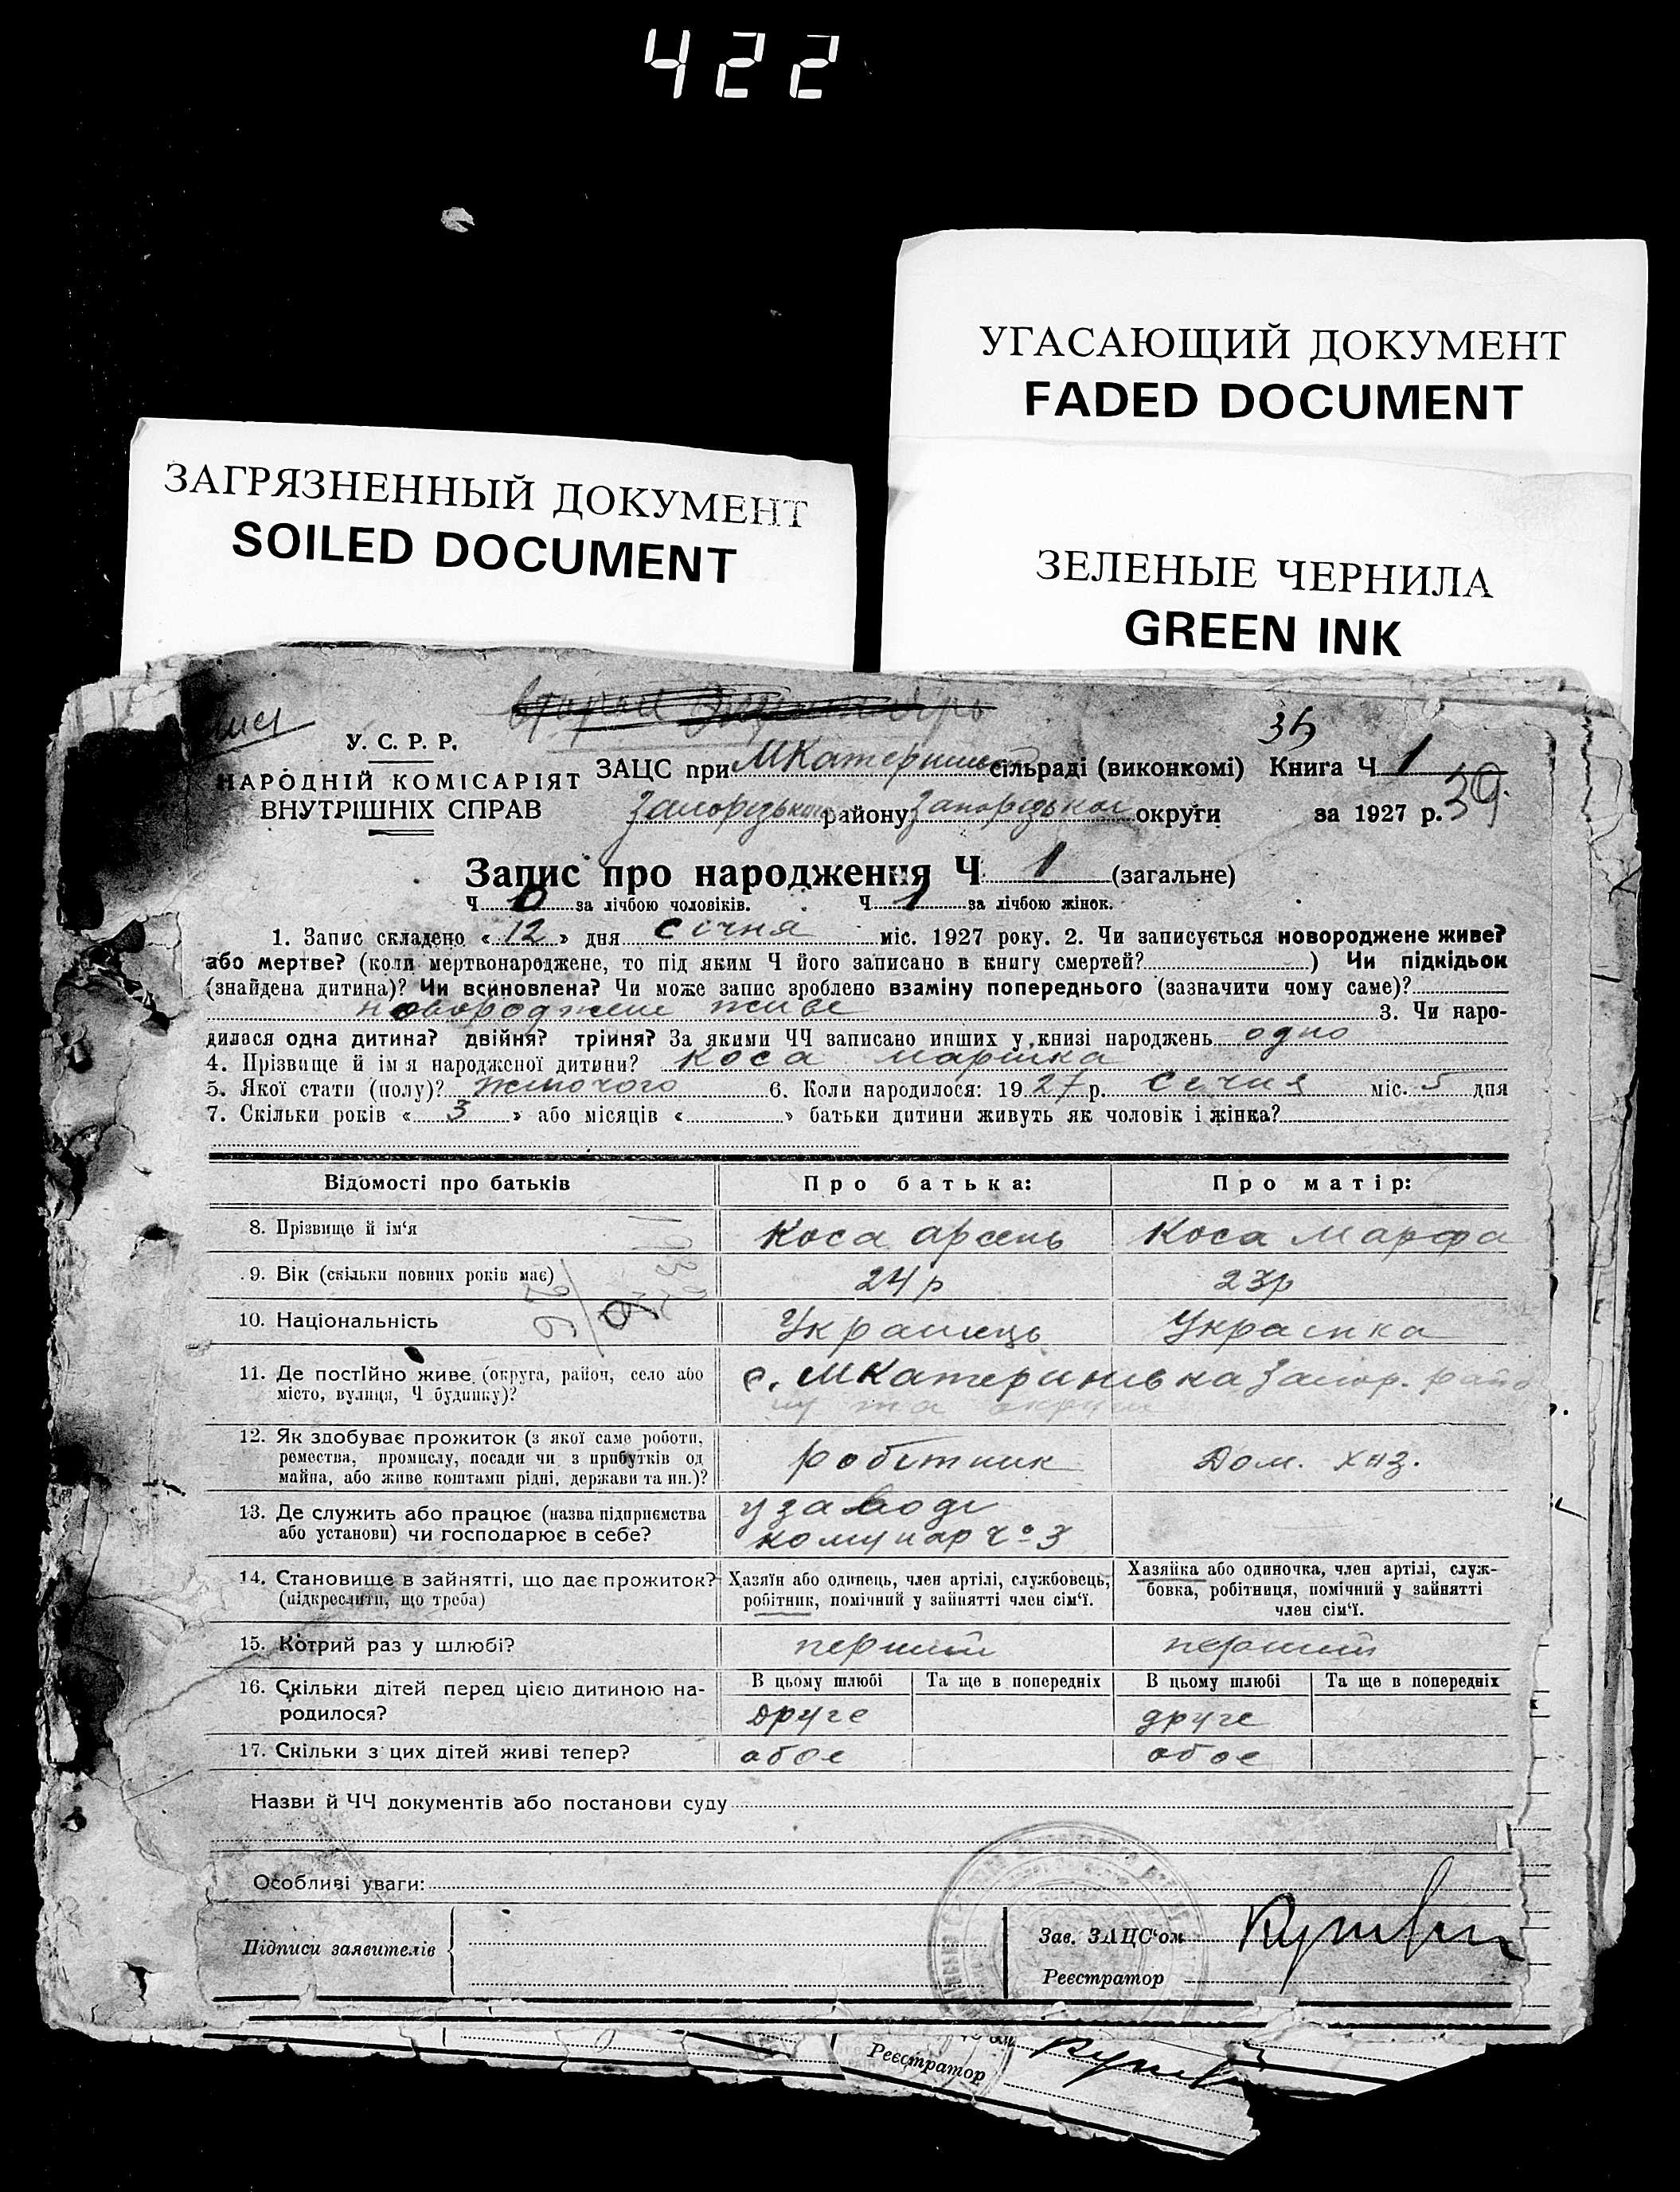 422
УГАСАЮЩИЙ ДОКУМЕНТ
FADED DOCUMENT
ЗАГРЯЗНЕННЫЙ ДОКУМЕНТ
SOILED DOCUMENT
ЗЕЛЕНЫЕ ЧЕРНИЛА
GREEN INK
35
У. С. Р. Р.
НАРОДНІЙ КОМІСАРІЯТ
ВНУТРІШНІХ СПРАВ
ЗАЦС при МКатерин сільраді (виконкомі) Книга Ч 1
Запорізького району Запорізької округи за 1927 р. 39
Запис про народження Ч 1 (загальне)
Ч 0 за лічбою чоловіків. Ч 1 за лічбою жінок.
1. Запис складено « 12 » дня Січня міс. 1927 року. 2. Чи записується новороджене живе?
або мертве? (коли мертвонароджене, то під яким Ч його записано в книгу смертей? ) Чи підкідьок
(знайдена дитина)? Чи всиновлена? Чи може запис зроблено взаміну попереднього (зазначити чому саме)?
новороджене живе 3. Чи наро-
дилася одна дитина? двійня? трійня? За якими ЧЧ записано инших у книзі народжень одно
4. Прізвище й ім'я народженої дитини? Коса Марійка
5. Якої стати (полу)? жіночого 6. Коли народилося: 1927 р. Січня міс. 5 дня
7. Скільки років « 3 » або місяців « » батьки дитини живуть як чоловік і жінка?
Відомості про батьків Про батька: Про матір:
8. Прізвище й ім'я Коса Арсень Коса Марфа
9. Вік (скільки повних років має) 24 р 23 р
10. Національність Українець Українка
11. Де постійно живе (округа, район, село або с. МКатеринівка Запор. райо
місто, вулиця, Ч будинку)? ну та округи
12. Як здобуває прожиток (з якої саме роботи,
ремества, промислу, посади чи з прибутків од робітник Дом. хаз.
майна, або живе коштами рідні, держави та ин.)?
13. Де служить або працює (назва підприємства у заводі
або установи) чи господарює в себе? комунар Ч° 3
14. Становище в зайнятті, що дає прожиток? Хазяїн або одинець, член артілі, службовець, Хазяйка або одиночка, член артілі, служ-
(підкреслити, що треба) робітник, помічний у зайнятті член сім'ї. бовка, робітниця, помічний у зайнятті
член сім'ї.
15. Котрий раз у шлюбі? перший перший
16. Скільки дітей перед цією дитиною на- В цьому шлюбі Та ще в попередніх В цьому шлюбі Та ще в попередніх
родилося? друге друге
17. Скільки з цих дітей живі тепер? обоє обоє
Назви й ЧЧ документів або постанови суду
Особливі уваги:
Підписи заявителів Зав. ЗАЦС'ом
Реєстратор
Реєстратор